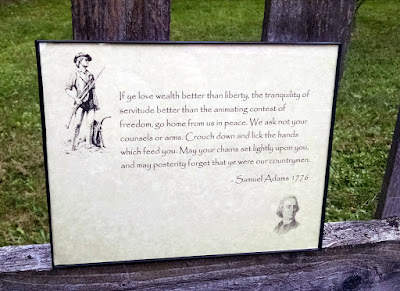 If ye love wealth better than liberty, the tranquility of
servitude better than the animating contest of
freedom, go home from us in peace. We ask not your
counsels or arms. Crouch down and lick the hands
which feed you. May your chains set lightly upon you,
and may posterity forget that ye were our countrymen.
- Samuel Adams 1776